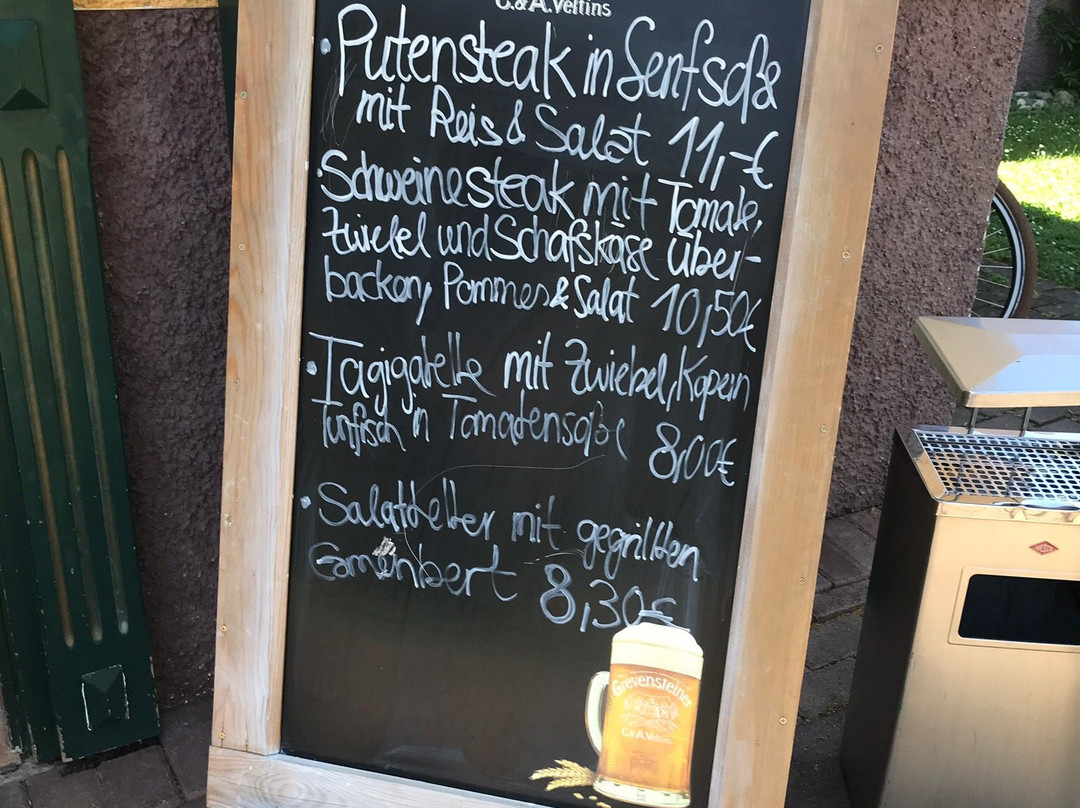 C.&A.Veltins
Putensteak in Senfsoße
mit Reis & Salat 11,-€
Schweinesteak mit Tomate,
Zwiebel und Schafskäse über-
backen, Pommes & Salat 10,50€
Tagigatelle mit Zwiebel, Kapern
Tunfisch in Tomatensoße 8,00€
Salatteller mit gegrillten
Camenbert 8,30€
Grevensteiner
C.&A.Veltins